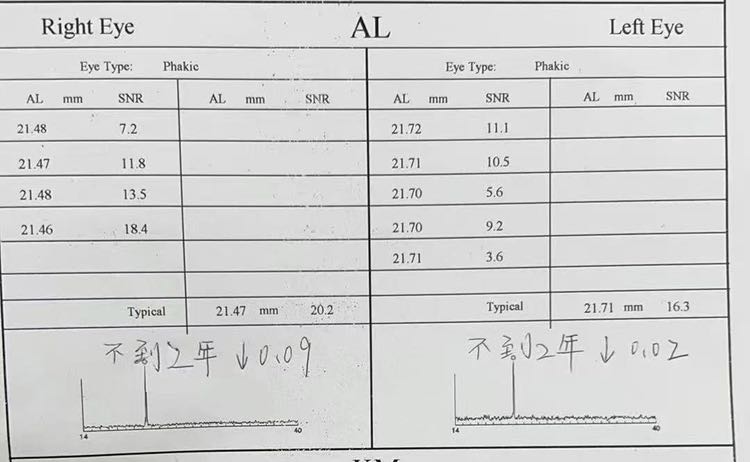 Right Eye AL Left Eye
Eye Type: Phakic Eye Type: Phakic
AL mm SNR AL mm SNR AL mm SNR AL mm SNR
21.48 7.2 21.72 11.1
21.47 11.8 21.71 10.5
21.48 13.5 21.70 5.6
21.46 18.4 21.70 9.2
21.71 3.6
Typical 21.47 mm 20.2 Typical 21.71 mm 16.3
不到2年↓0.09 不到2年↓0.02
14 40 14 40